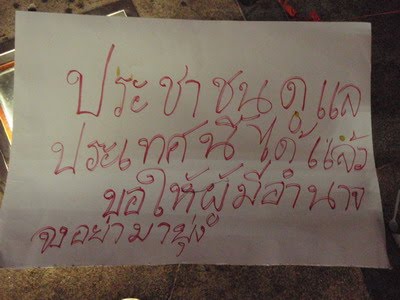 ประชาชนดูแล
ประเทศนี้ได้แล้ว
ขอให้ผู้มีอำนาจ
จงอย่ามายุ่ง